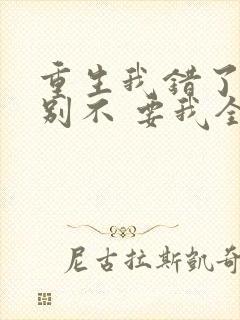 重生我错了
别不 要我全
尼古拉斯凯奇